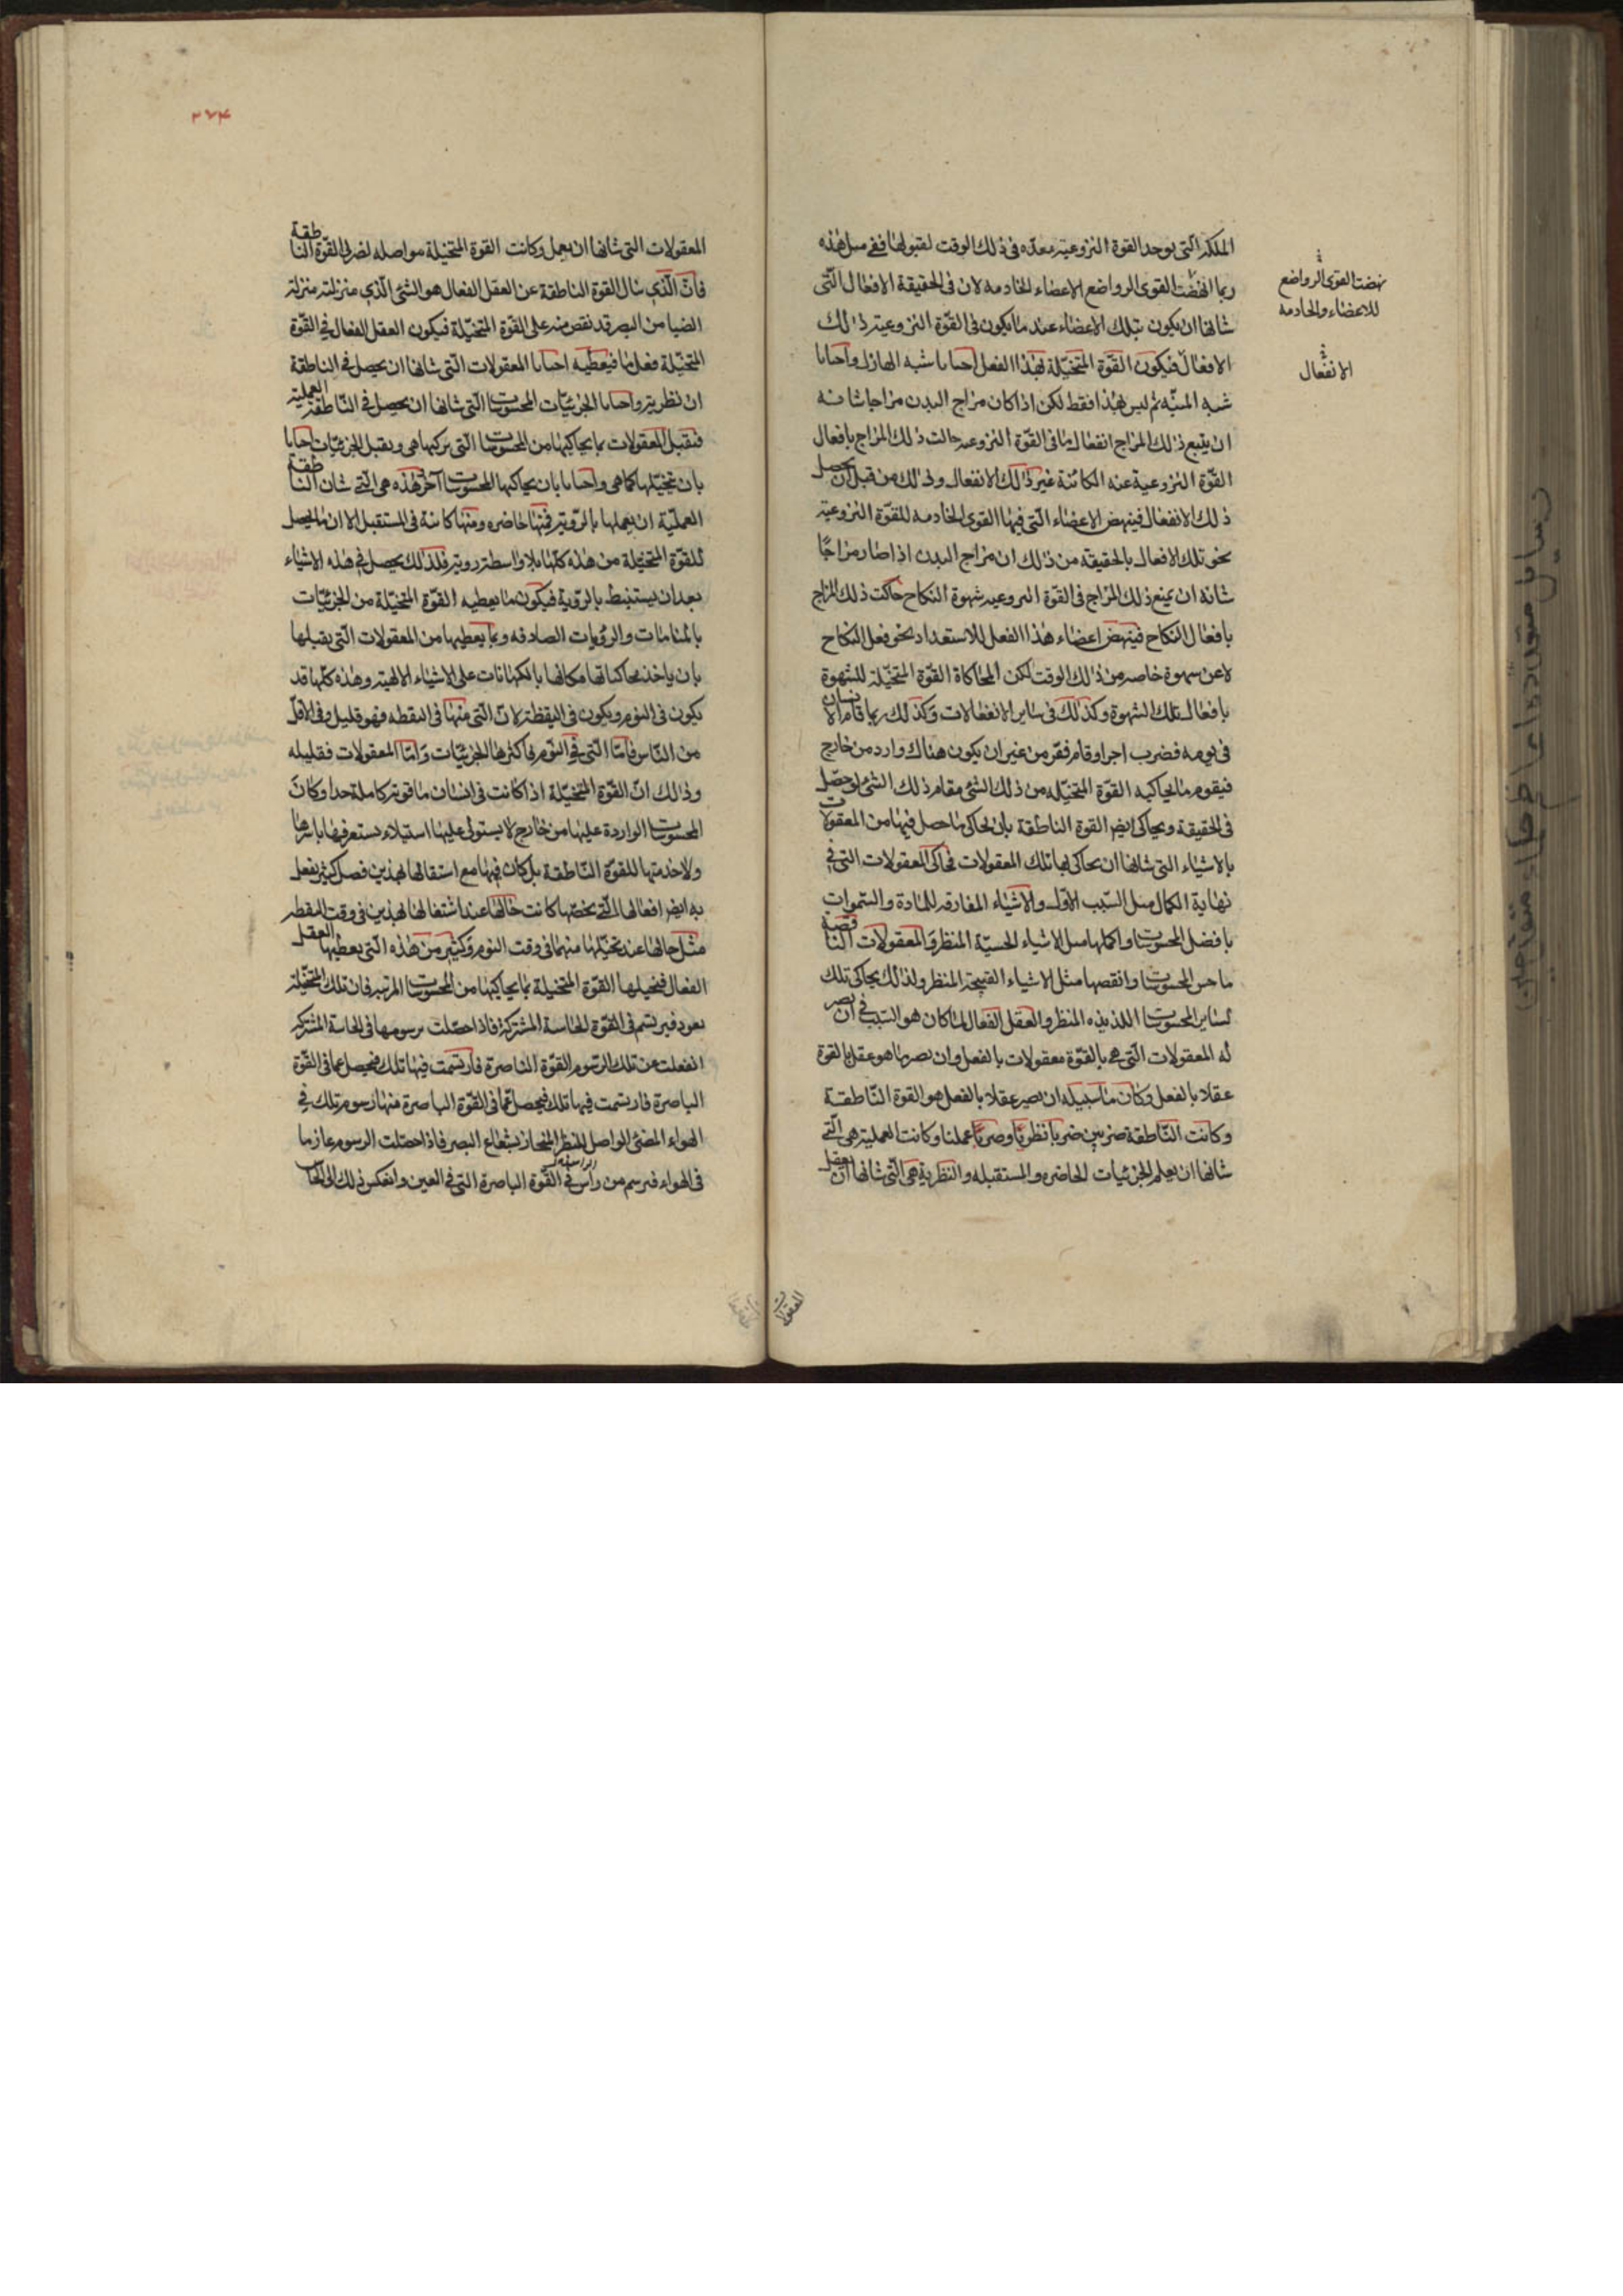 الملكة التى توجد القوة النزوعية معدّه فى ذلك الوقت لقبولها ففى مثل هذه
ربما انهضت القوى الرواضع الاعضاء الخادمه لان فى الحقيقة الافعال التّى
شانها ان يكون بتلك الاعضاء عند ما يكون فى القوّة النزوعية ذلك
الافعال فيكون القوّة المتخيّلة بهذا الفعل احيانا شبه الهازل واحيانا
شبه المنبّه ثم ليس بهذا فقط لكن اذا كان مزاج البدن مزاجا شانه
ان يتبع ذلك المزاج انفعال ما فى القوّة النزوعيه حاكت ذلك المزاج بافعال
القوّة النزوعية عنه الكائنة غير ذلك الانفعال وذلك من قبل ان يحصل
ذلك الانفعال فينهض الاعضاء التى فيها القوى الخادمه للقوّة النزوعية
نحو تلك الافعال بالحقيقة من ذلك ان مزاج البدن اذا صار مزاجًا
شانه ان يتبع ذلك المزاج فى القوّة النزوعيه شهوة النكاح حاكت ذلك المزاج
بافعال النكاح فينهض اعضاء هذا الفعل للاستعداد نحو فعل النكاح
لا عن شهوة خاصه من ذلك الوقت لكن لمحاكاة القوّة المتخيّلة للشهوة
بافعال تلك الشهوة وكذلك فى ساير الانفعالات وكذلك ربما قام الانسان
فى نومه فضرب اخر او قام ففر من غير ان يكون هناك وارد من خارج
فيقوم ما يحاكيه القوّة المتخيّله من ذلك الشئ مقام ذلك الشئ لو حصّل
فى الحقيقة ويحاكى ايضا القوة الناطقة بان يحاكى ما حصل فيها من المعقولات
بالاشياء التى شانها ان يحاكى بها تلك المعقولات فيحاكى المعقولات التى فى
نهاية الكمال مثل السّبب الاوّل والاشياء المفارقه للمادة والسّموات
بافضل المحسوسات واكملها مثل الاشياء الحسنة المنظر والمعقولات الناقصة
باخس المحسوسات وانقصها مثل الاشياء القبيحة المنظر ولذلك يحاكى تلك
لساير المحسوسات اللذيذه المنظر والعقل الفعال لما كان هو السّبب فى ان يصير
له المعقولات التى هى بالقوّة معقولات بالفعل وان يصير ما هو عقل بالقوة
عقلا بالفعل وكان ما سبيله ان يصير عقلا بالفعل هو القوة النّاطقة
وكانت النّاطقة ضربين ضربا نظريًا وضربًا عمليا وكانت العملية هى الّتى
شانها ان يعلم الجزئيات الحاضره والمستقبله والنظرية هى الّتى شانها ان يعقل
نهضت القوى الرواضع
للاعضاء والخادمه
الانفعال
المعقولات
٢٧٤
المعقولات التى شانها ان يعمل وكانت القوة المتخيلة مواصله لضربى القوّة الناطقة
فانّ الّذى ينال القوة الناطقة عن العقل الفعال هو الشئ الّذى منزلته منزلة
الضيا من البصر قد نقص منه على القوّة المتخيّلة فيكون العقل الفعال فى القوّة
المتخيّلة فعل ما فيعطيه احيانا المعقولات الّتى شانها ان يحصل فى الناطقة
ان نظرية واحيانا الجزئيّات المحسوسات الّتى شانها ان يحصل فى النّاطقة العملية
فتقبل المعقولات بما يحاكيها من المحسوسات الّتى يركبها هى ويقبل الجزئيّات احيانا
بان تتخيّلها كما هى واحيانا بان يحاكيها بالمحسوسات آخر وهذه هى الّتى شان الناطقة
العمليّة ان يعملها بالرّوية فمنها حاضره ومنها كائنة فى المستقبل الا ان ما يحصل
للقوّة المتخيّلة من هذه كلّها بلا واسطة روية فلذلك يحصل فى هذه الاشياء
بعد ان يستنبط بالرّوية فيكون ما يعطيه القوّة المتخيّلة من الجزئيّات
بالمنامات والرؤيات الصادقه وبما يعطيها من المعقولات الّتى يقبلها
بان ياخذ محاكياتها مكانها بالكهانات على الاشياء الالهية وهذه كلّها قد
يكون فى النوم ويكون فى اليقظة لانّ الّتى منها فى اليقظه فهو قليل وفى الاقلّ
من النّاس فامّا الّتى فى النّوم فاكثرها الجزئيّات وامّا المعقولات فقليله
وذلك انّ القوّة المتخيّلة اذا كانت فى انسان ما قوية كاملة جدا وكان
المحسوسات الواردة عليها من خارج لا يستولى عليها استيلاء يستعرقها باسرها
ولا خدمتها للقوّة النّاطقة بل كان فيها مع اشتغالها بهذين فضل كثير يفعل
به ايضا افعالها الّتى يخصّها كانت حالها عند اشتغالها بهذين فى وقت اليقظه
مثل حالها عند تحيّلها منهما فى وقت النوم وكثير من هذه الّتى يعطيها العقل
الفعال فتخيلها القوّة المتخيلة بما يحاكيها من المحسوسات المرئية فان تلك المتخيّلة
يعود فيرتسم فى القوّة الحاسة المشتركة فاذا حصّلت رسومها فى الحاسة المشتركة
انفعلت عن تلك الرّسوم القوّة الناصرة فارتسمت فيها تلك فيحصل عما فى القوّة
الباصرة فارتسمت فيها تلك فيحصل عمّا فى القوّة الباصرة منها رسوم تلك فى
الهواء المضئ الواصل للنظر المنحاز بشعاع البصر فاذا حصّلت الرسوم
فى الهواء فيرسم من رأس فى القوّة الباصرة الّتى فى العين وانعكس ذلك الى الحاس